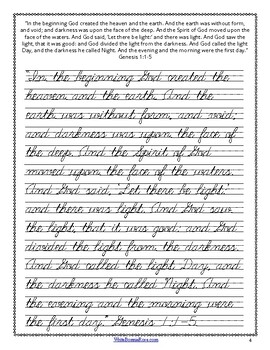 "In the beginning God created the heaven and the earth. And the earth was without form,
and void; and darkness was upon the face of the deep. And the Spirit of God moved upon the
face of the waters. And God said, 'Let there be light:' and there was light. And God saw the
light, that it was good; and God divided the light from the darkness. And God called the light
Day, and the darkness he called Night. And the evening and the morning were the first day."
Genesis 1:1-5
"In the beginning God created the
heaven and the earth. And the
earth was without form, and void;
and darkness was upon the face of
the deep. And the Spirit of God
moved upon the face of the waters.
And God said, "Let there be light:"
and there was light. And God saw
the light, that it was good; and God
divided the light from the darkness.
And God called the light Day, and
the darkness he called Night. And
the evening and the morning were
the first day." Genesis 1:1-5
4